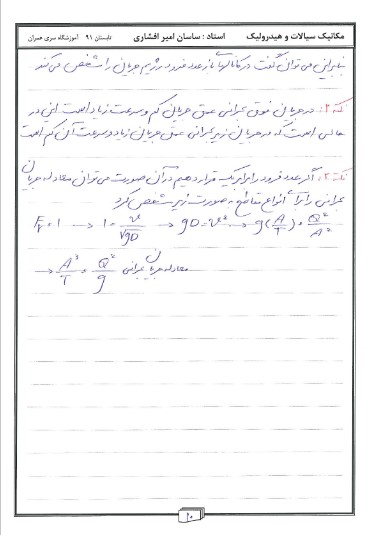 مکانیک سیالات و هیدرولیک استاد : ساسان امیر افشاری تابستان ۹۱ آموزشگاه سری عمران
بنابراین می توان گفت در کانالها نیز عدد فرود رژیم جریان را مشخص می کند
نکته ۲: در جریان فوق بحرانی عمق جریان کم و سرعت زیاد است این در
حالی است که در جریان زیر بحرانی عمق جریان زیاد و سرعت آن کم است
نکته ۳: اگر عدد فرود را برابر یک قرار دهیم در آن صورت می توانی معادله جریان
بحرانی را برای انواع مقاطع به صورت زیر مشخص کرد
Fr = 1 → 1 = v/√gD → gD = v² → g(A/T) = Q²/A²
→ A³/T = Q²/g معادله جریان بحرانی